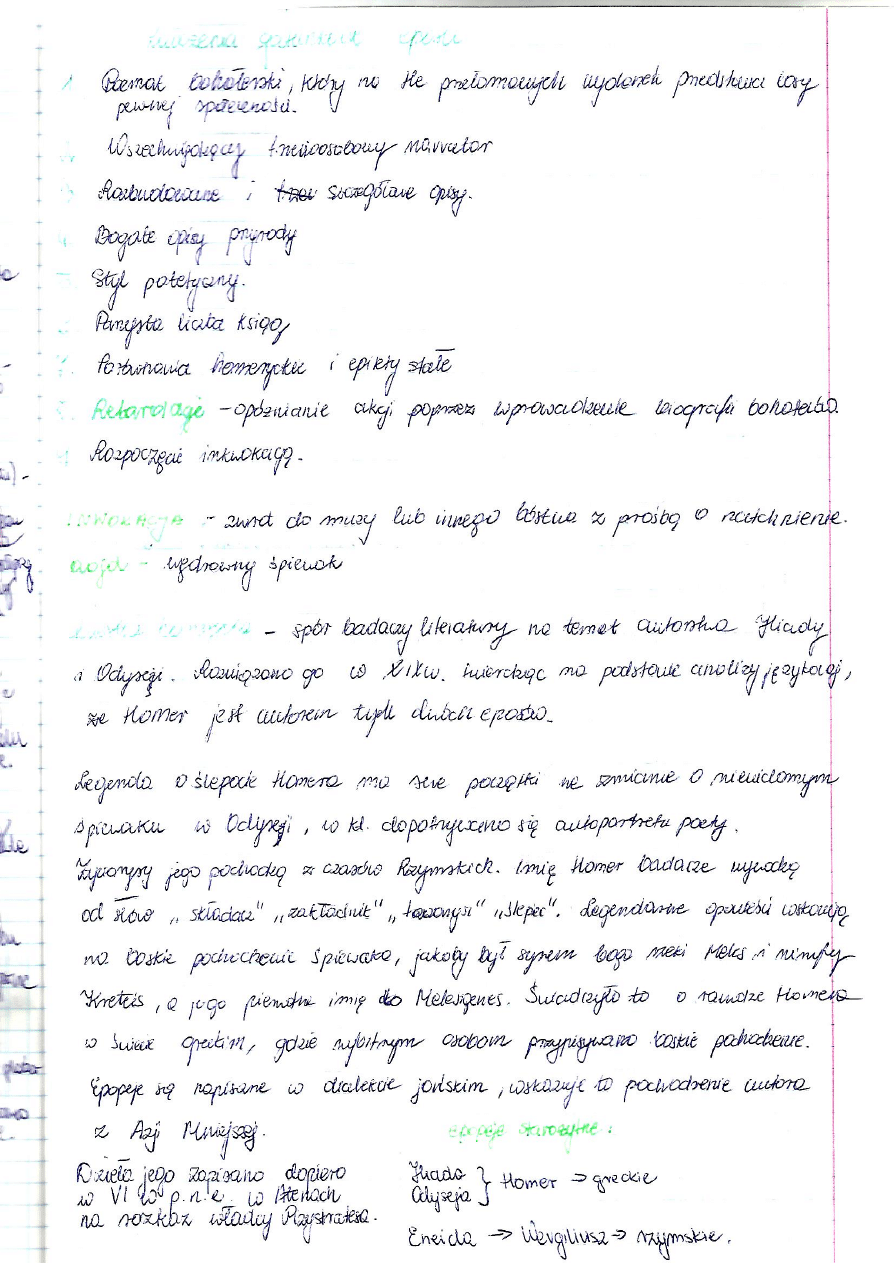 eposu
1 Poemat bohaterski, który na tle przełomowych wydarzeń przedstawia losy
pewnej społeczności.
Wszechwiedzący trzecioosobowy narrator
3 Rozbudowane i szczegółowe opisy.
4 Bogate opisy przyrody
Styl patetyczny.
Parzysta liczba ksiąg
7. Porównania homeryckie i epitety stałe
8. Retardacje - opóźnianie akcji poprzez wprowadzenie biografii bohatera.
9 Rozpoczęcie inkwokacją.
INWOKACJA - zwrot do muzy lub innego bóstwa z prośbą o natchnienie.
aojd - wędrowny śpiewak
- spór badaczy literatury na temat autorstwa Iliady
i Odysei. Rozwiązano go w XIXw. twierdząc na podstawie analizy językowej,
że Homer jest autorem tych dwóch eposów.
Legenda o ślepocie Homera ma swe początki we wzmiance o niewidomym
śpiewaku w Odysei, w kt. dopatrywano się autoportretu poety.
Życiorysy jego pochodzą z czasów Rzymskich. Imię Homer badacze wywodzą
od słów "składacz" "zakładnik" "towarzysz" "ślepiec". Legendarne opowieści wskazują
na boskie pochodzenie śpiewaka, jakoby był synem boga rzeki Meles i nimfy
Kreteis, a jego pierwotne imię to Melesigenes. Świadczyło to o randze Homera
w świecie greckim, gdzie wybitnym osobom przypisywano boskie pochodzenie.
Epopeje są napisane w dialekcie jońskim, wskazuje to pochodzenie autora
z Azji Mniejszej.
Dzieła jego zapisano dopiero
w VI w p.n.e. w Atenach
na rozkaz władcy Pizystratesa.
epopeje starożytne:
Iliada
Odyseja } Homer → greckie
Eneida → Wergiliusz → rzymskie.